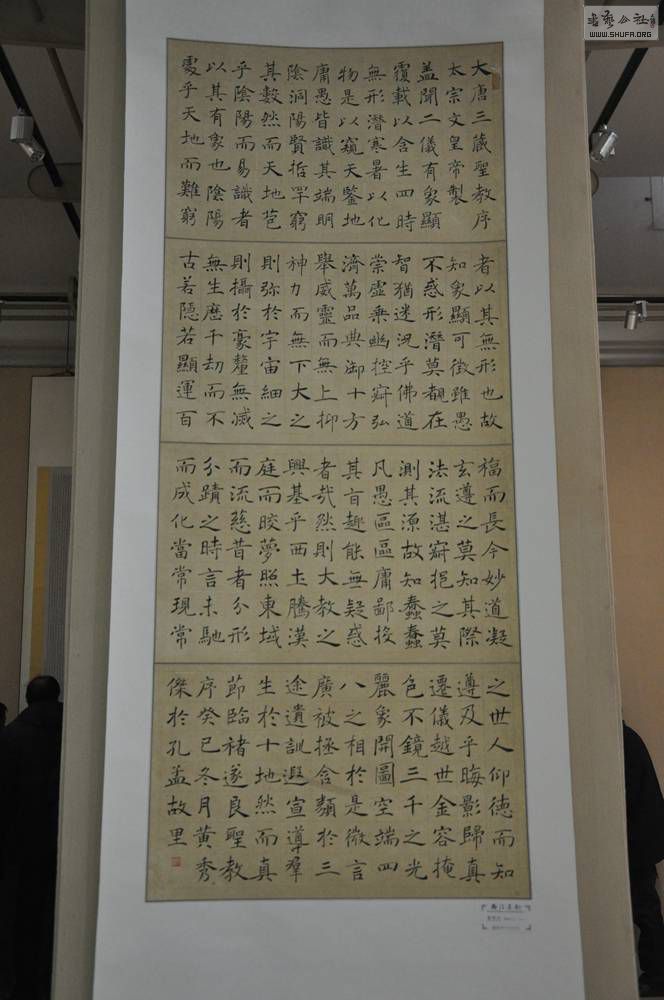 書藝公社
WWW.SHUFA.ORG
大唐三藏聖教序
太宗文皇帝製
蓋聞二儀有象顯
覆載以含生四時
無形潛寒暑以化
物是以窺天鑒地
庸愚皆識其端明
陰洞陽賢哲罕窮
其數然而天地苞
乎陰陽而易識者
以其有象也陰陽
處乎天地而難窮
者以其無形也故
知象顯可徵雖愚
不惑形潛莫覩在
智猶迷況乎佛道
崇虛乘幽控寂弘
濟萬品典御十方
舉威靈而無上抑
神力而無下大之
則弥於宇宙細之
則攝於豪釐無滅
無生歷千劫而不
古若隱若顯運百
福而長今妙道凝
玄遵之莫知其際
法流湛寂挹之莫
測其源故知蠢蠢
凡愚區區庸鄙投
其旨趣能無疑惑
者哉然則大教之
興基乎西土騰漢
庭而皎夢照東域
而流慈昔者分形
分蹟之時言未馳
而成化當常現常
之世人仰德而知
遵及乎晦影歸真
遷儀越世金容掩
色不鏡三千之光
麗象開圖空端四
八之相於是微言
廣被拯含類於三
途遺訓遐宣導羣
生於十地然而真
節臨褚遂良聖教
序癸巳冬月黃秀
傑於孔孟故里